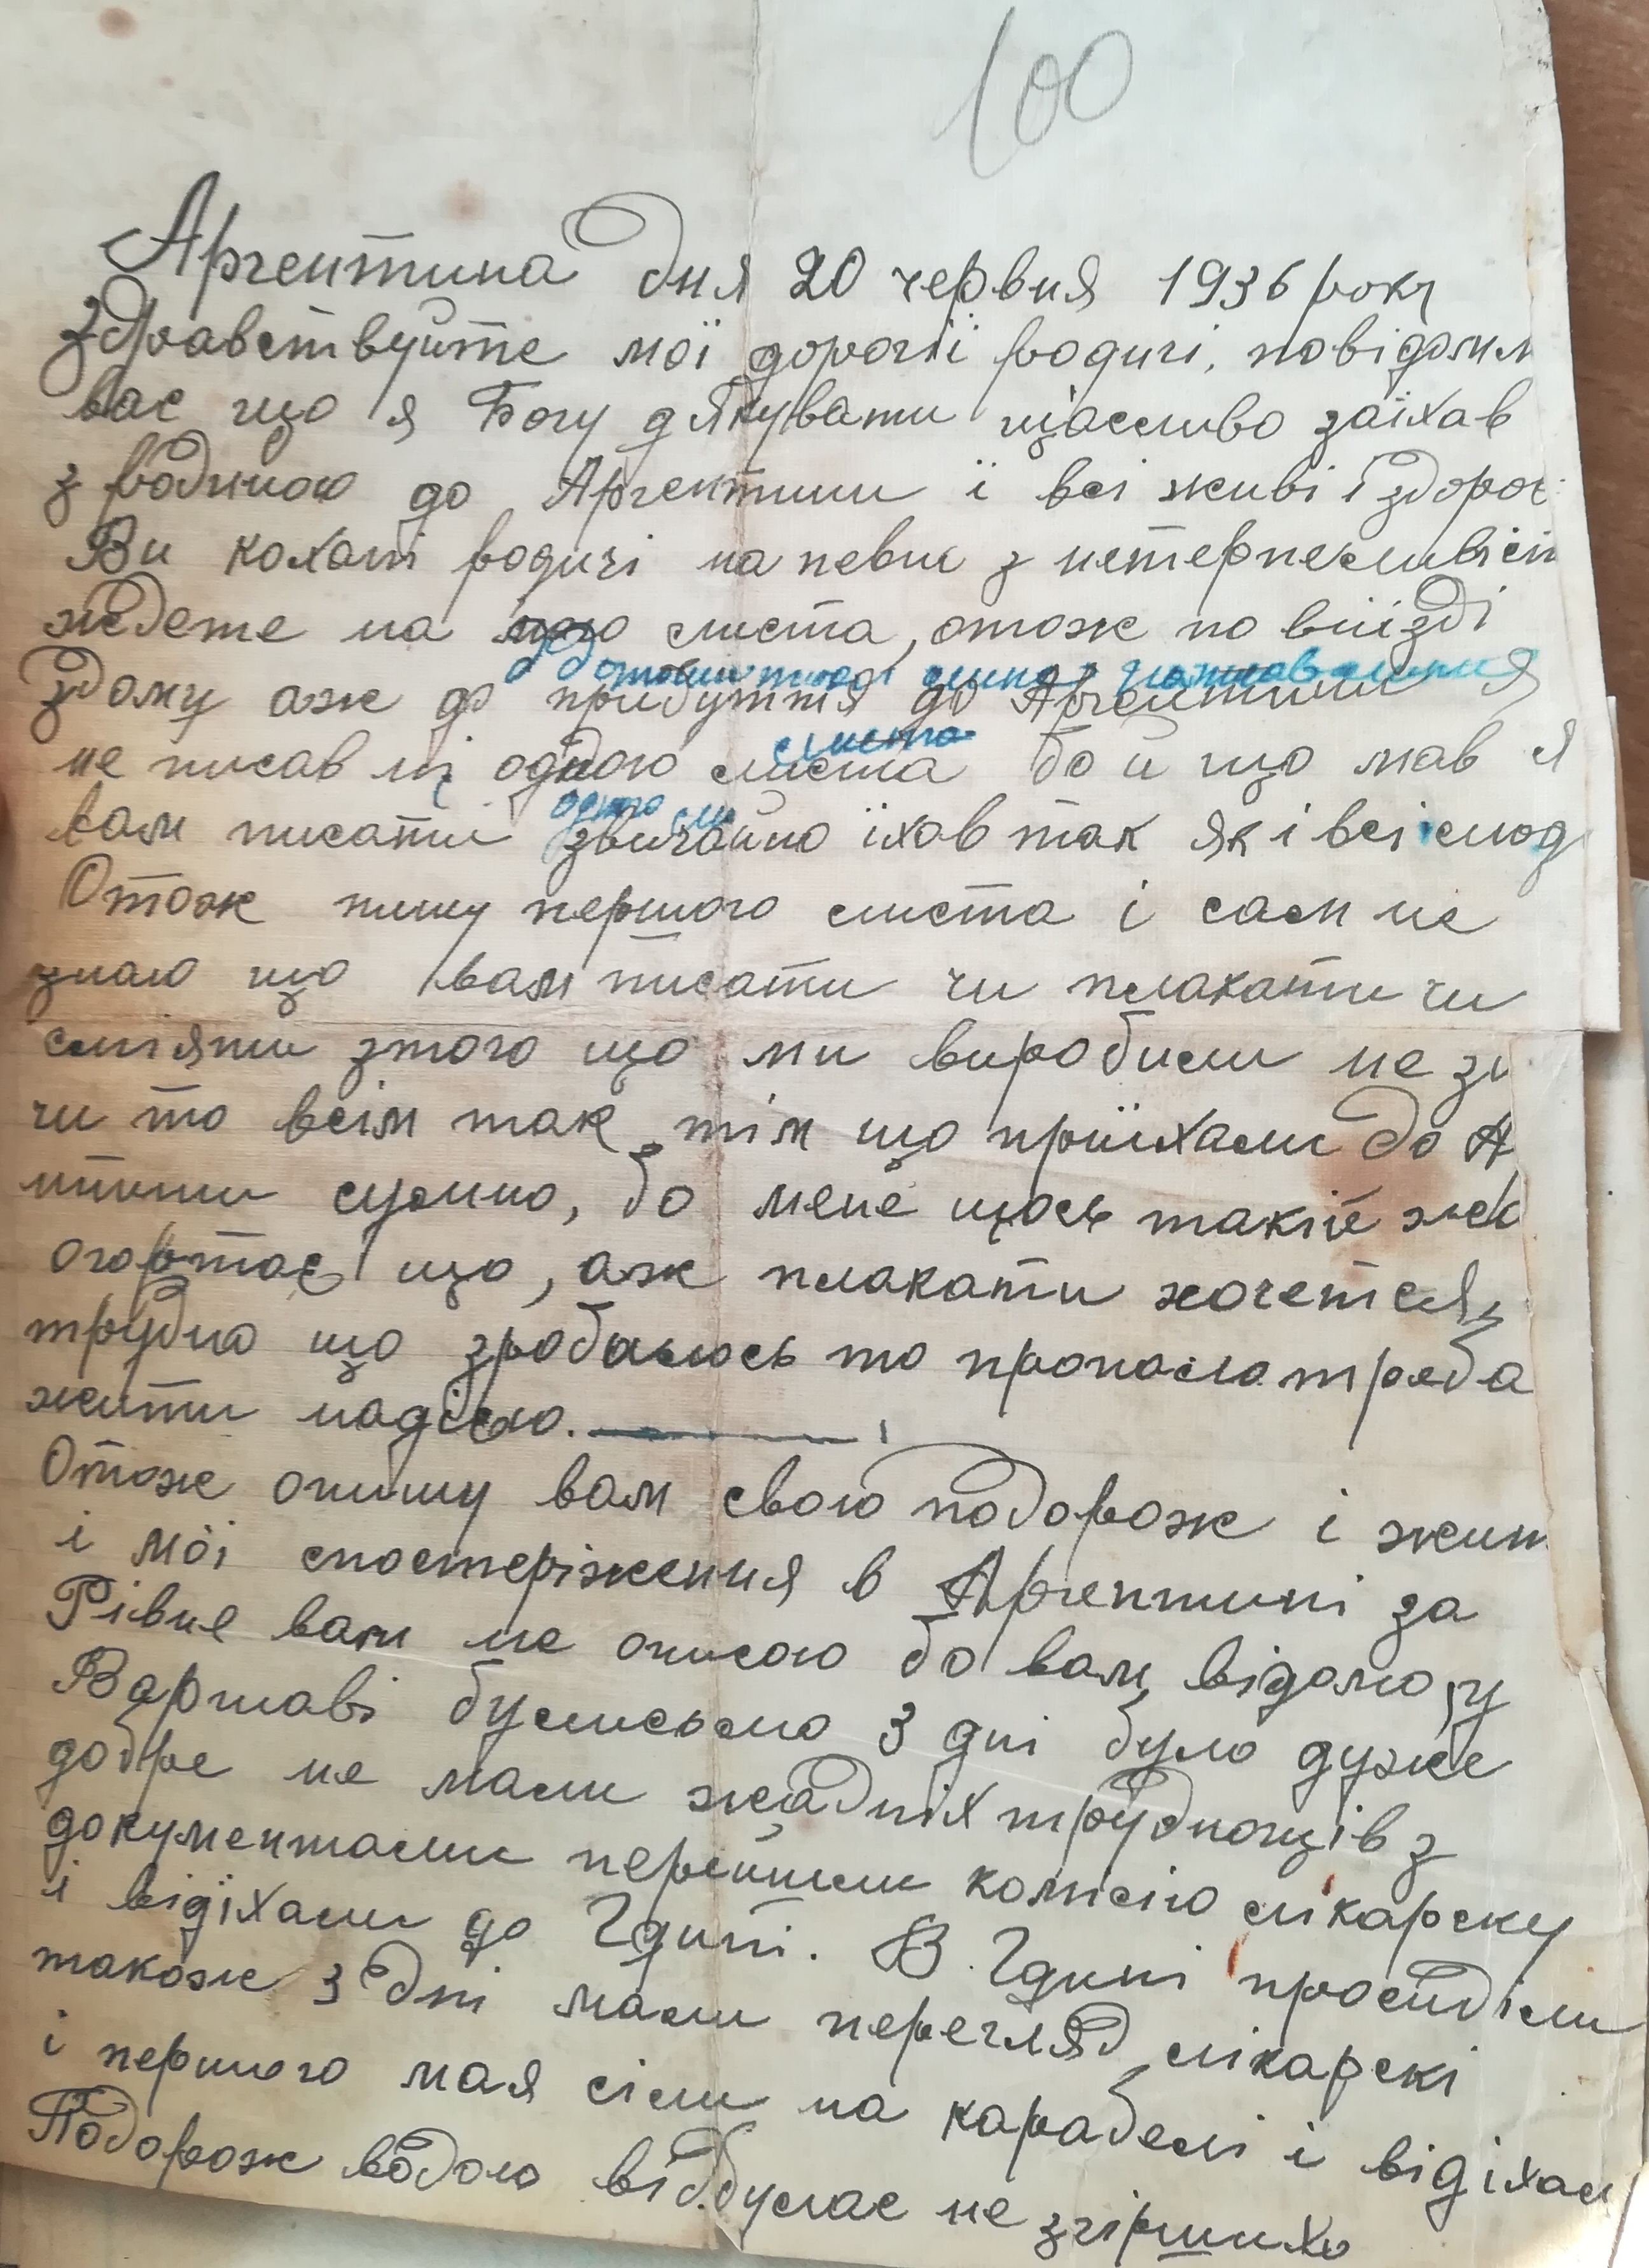 100
Аргентина дня 20 червня 1936 року
Здравствуйте мої дорогії родичі, повідомл
вас що я Богу дякувати щасливо заїхав
з родиною до Аргентини і всі живі і здоров
Ви кохані родичі на певне з нетерпеливісті
ждете на мого листа, отож по виїзді
здому аж до прибуття до Аргентини я
не писав ні одного листа бо й що мав я
вам писати звичайно їхав так як і всі люд
Отож пишу першого листа і сам не
знаю що вам писати чи плакати чи
сміяти зтого що ми виробили не зн
чи то всім так тім що приїхали до А
нтини сумно, бо мене щось такій
огортає що, аж плакати хочеться,
трудно що зробилось то пропало треба
жити надією.
Отож опишу вам свою подорож і жит
і мої спостеріження в Аргентині за
Рівне вам не описою бо вам відомо, у
Варшаві булисьмо 3 дні було дуже
добре не мали жадніх труднощів з
документами перейшли комісію лікарску
і відїхали до Гдині. В Гдині просиділи
також 3 дні мали перегляд лікарскі
і першого мая сіли на карабелі і відїхал
Подорож водою відбулас не згіршихо